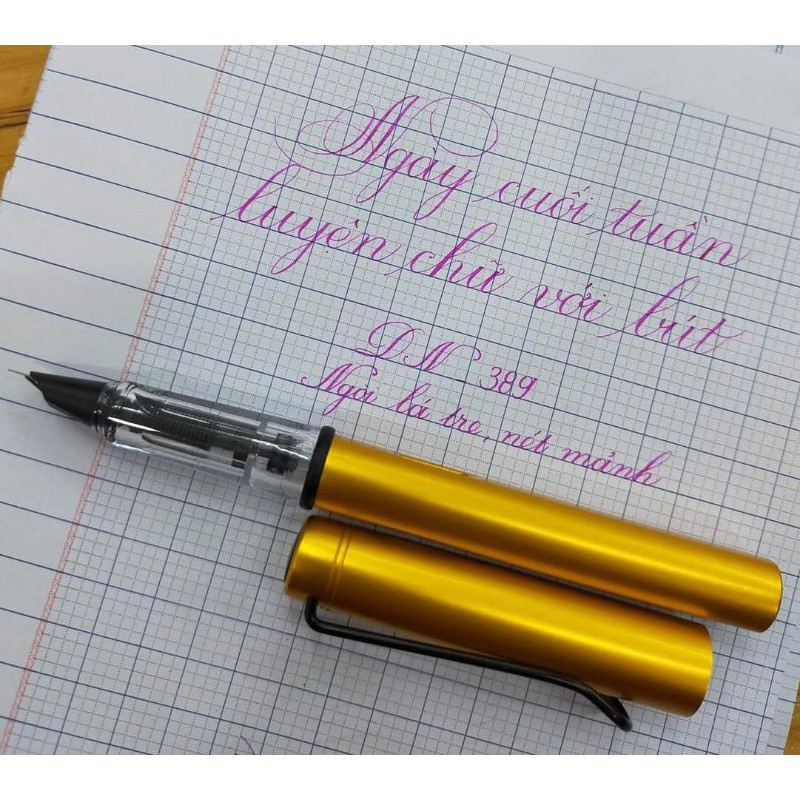 Ngày cuối tuần
luyện chữ với bút
DN 389
Ngòi lá tre, nét mảnh